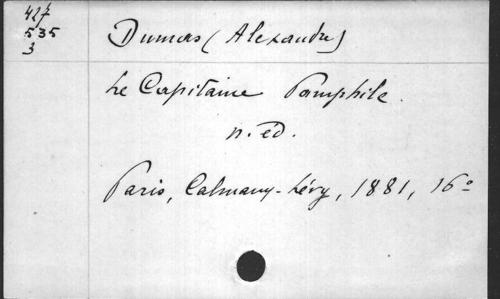 427
535
3
Dumas (Alexandre)
Le Capitaine Pamphile.
n. éd.
Paris, Calmann-Lévy, 1881, 16º